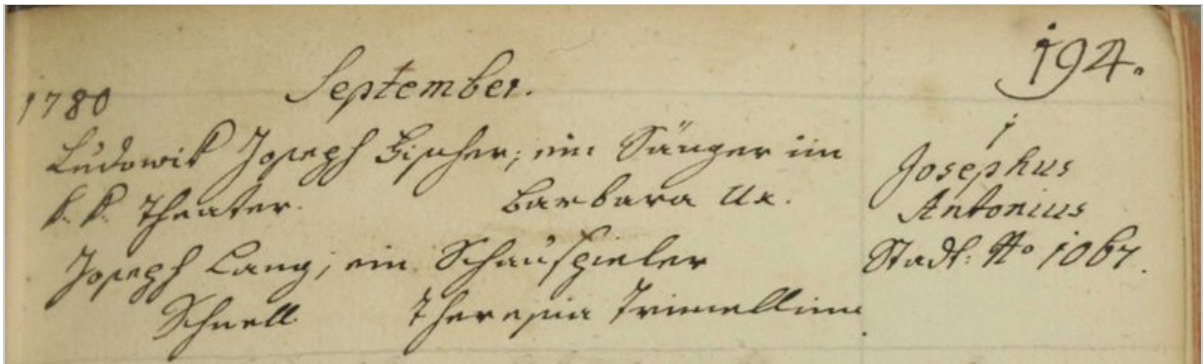 194.
1780 September.
Ludowik Joseph Fischer; ein Sänger im
k. k. Theater. Barbara Ux.
Joseph Lang; ein Schauspieler
Schnell Theresia
Josephus
Antonius
Stadt: No 1067.